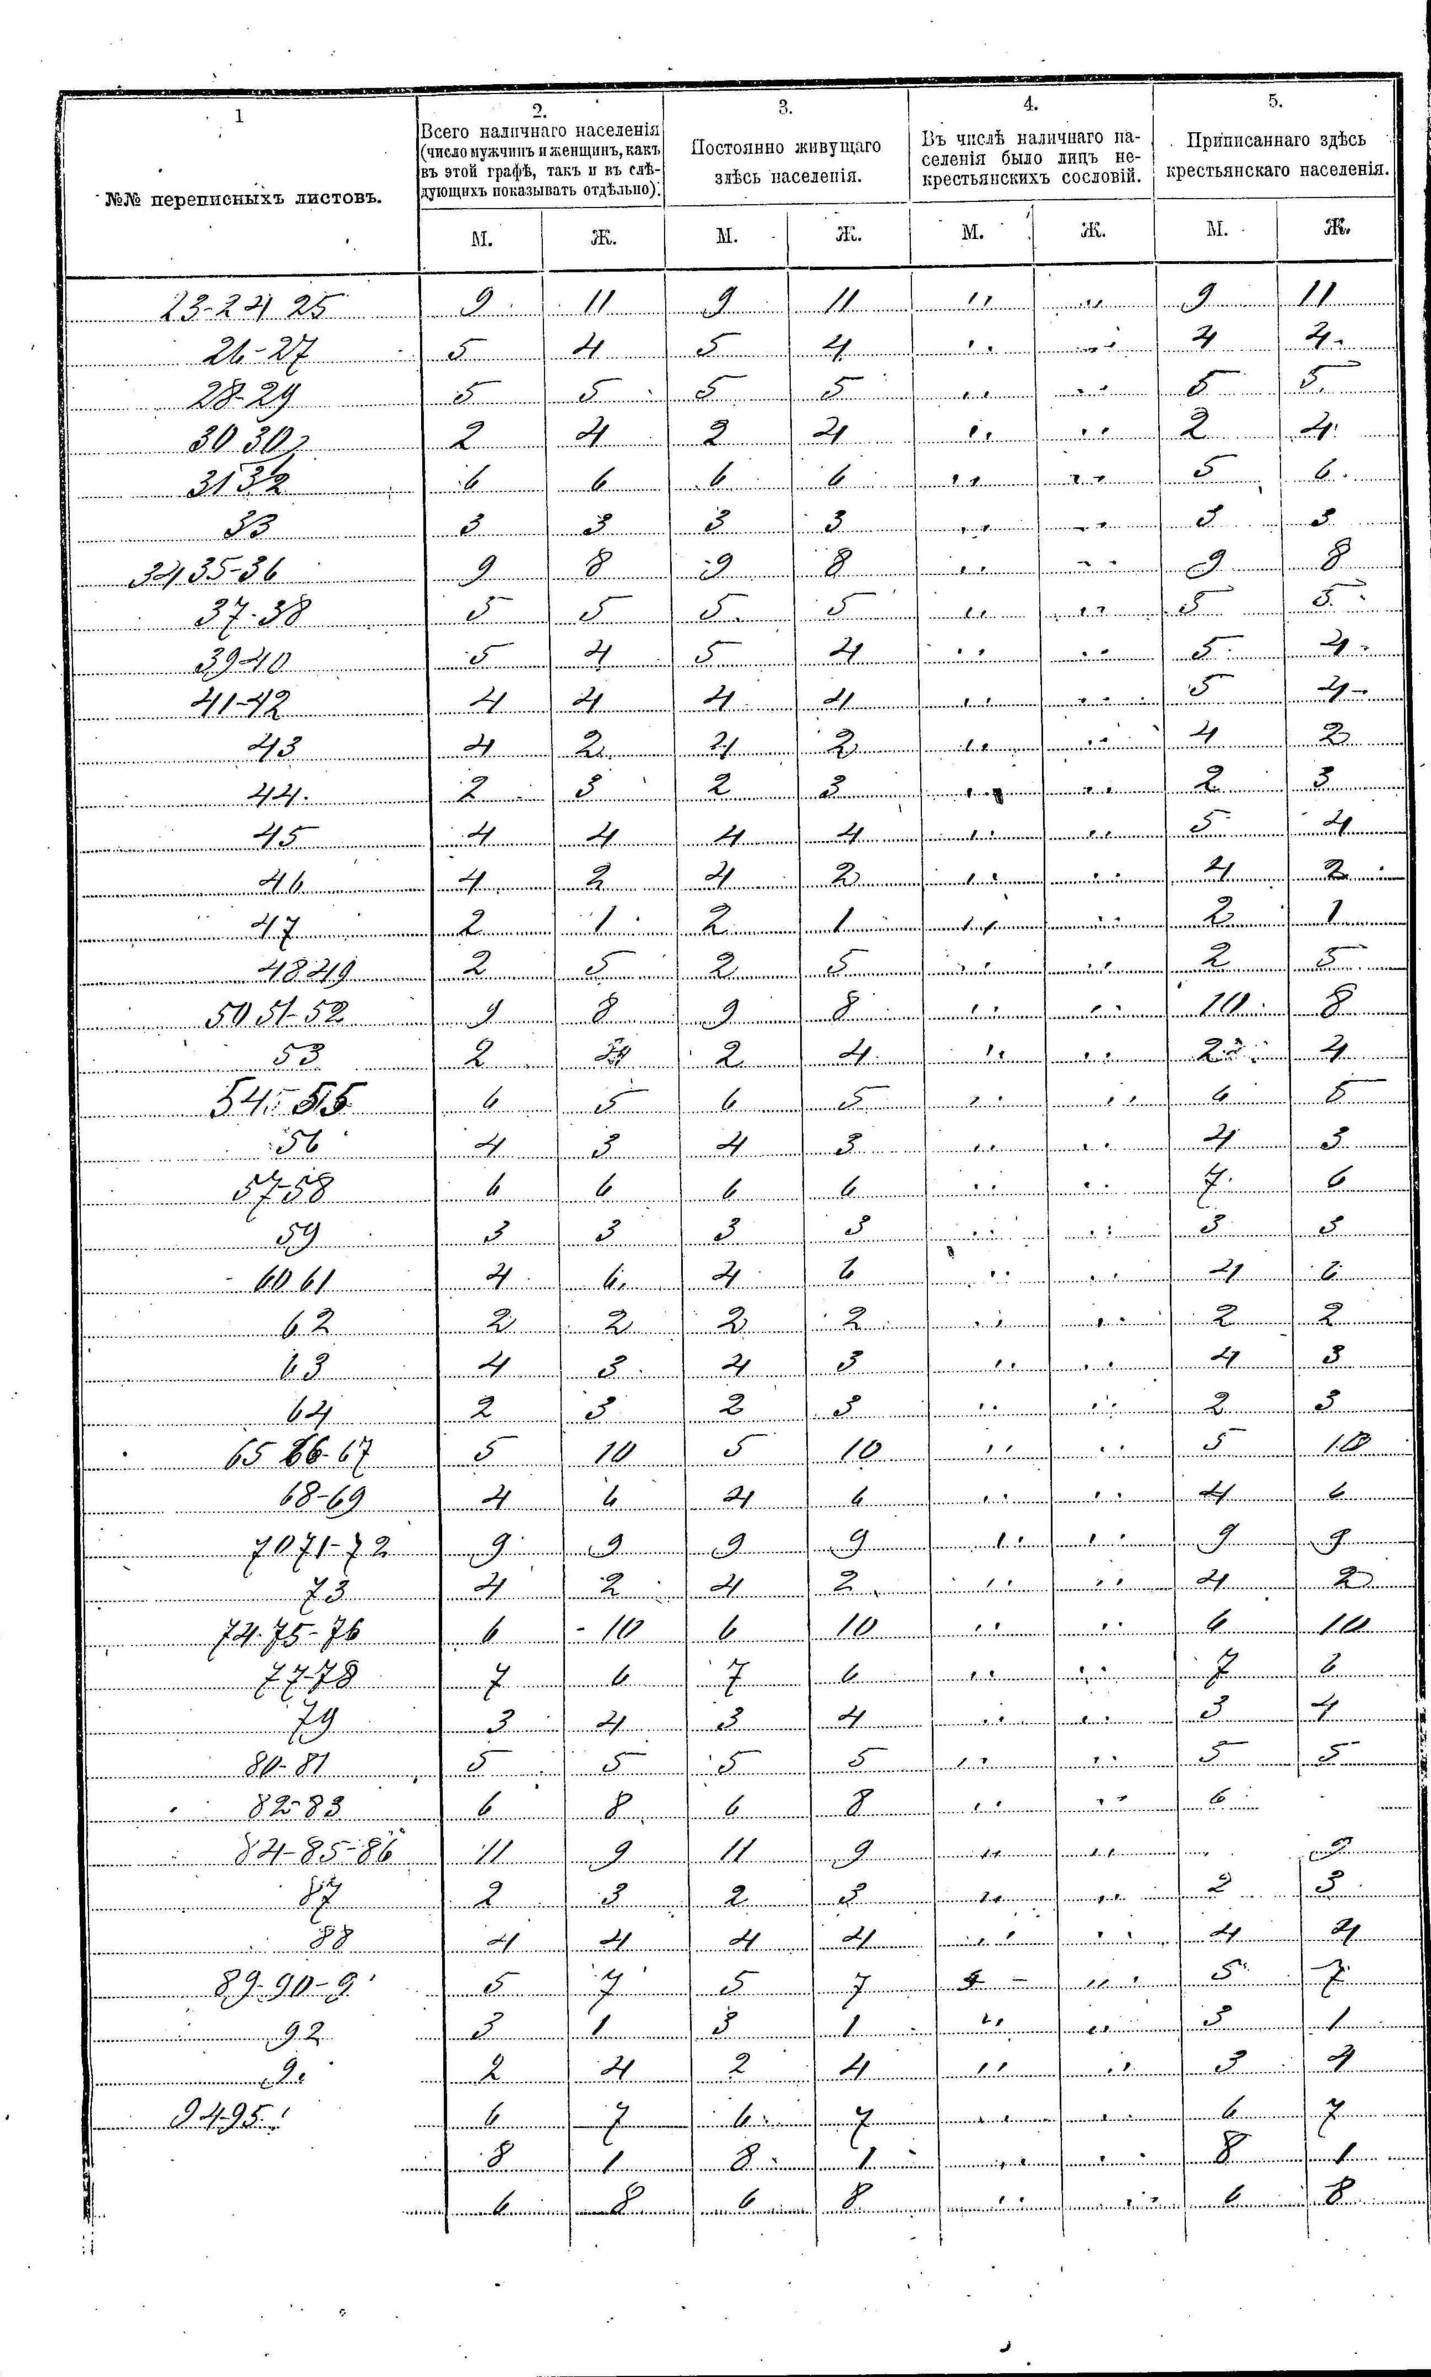 1 2. 3. 4. 5.
№№ переписныхъ листовъ.
Всего наличнаго населенія
(число мужчинъ и женщинъ, какъ
въ этой графѣ, такъ и въ слѣ-
дующихъ показывать отдѣльно).
Постоянно живущаго
здѣсь населенія.
Въ числѣ наличнаго на-
селенія было лицъ не-
крестьянскихъ сословій.
Приписаннаго здѣсь
крестьянскаго населенія.
М. Ж. М. Ж. М. Ж. М. Ж.
23-24 25 9 11 9 11 " " 9 11
26-27 5 4 5 4 " " 4 4
28-29 5 5 5 5 " " 5 5
30 30 2 4 2 4 " " 2 4
31 32 6 6 6 6 " " 5 6
33 3 3 3 3 " " 3 3
34 35-36 9 8 9 8 " " 9 8
37-38 5 5 5 5 " " 5 5
39-40 5 4 5 4 " " 5 4
41-42 4 4 4 4 " " 5 4
43 4 2 4 2 " " 4 2
44 2 3 2 3 " " 2 3
45 4 4 4 4 " " 5 4
46 4 2 4 2 " " 4 2
47 2 1 2 1 " " 2 1
48 49 2 5 2 5 " " 2 5
50 51-52 9 8 9 8 " " 10 8
53 2 4 2 4 " " 2 4
54-55 6 5 6 5 " " 6 5
56 4 3 4 3 " " 4 3
57-58 6 6 6 6 " " 7 6
59 3 3 3 3 " " 3 3
60 61 4 6 4 6 " " 4 6
62 2 2 2 2 " " 2 2
63 4 3 4 3 " " 4 3
64 2 3 2 3 " " 2 3
65 66-67 5 10 5 10 " " 5 10
68-69 4 6 4 6 " " 4 6
70 71-72 9 9 9 9 " " 9 9
73 4 2 4 2 " " 4 2
74-75-76 6 10 6 10 " " 6 10
77-78 7 6 7 6 " " 7 6
79 3 4 3 4 " " 3 4
80-81 5 5 5 5 " " 5 5
82-83 6 8 6 8 " " 6
84-85-86 11 9 11 9 " " 9
87 2 3 2 3 " " 2 3
88 4 4 4 4 " " 4 4
89-90-9 5 7 5 7 " 5 7
92 3 1 3 1 " " 3 1
9 2 4 2 4 " " 3 4
94-95 6 7 6 7 " " 6 7
8 1 8 1 " " 8 1
6 8 6 8 " " 6 8